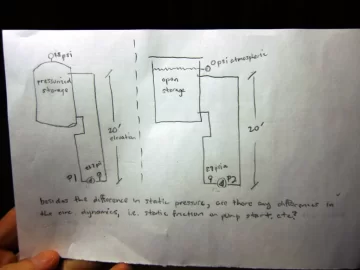 psi
pressurized
storage
20'
elevation
P1
0 psi atmospheric
open
storage
20'
P2
besides the difference in static pressure, are there any differences in
the pump dynamics, i.e. static friction on pump start, etc?